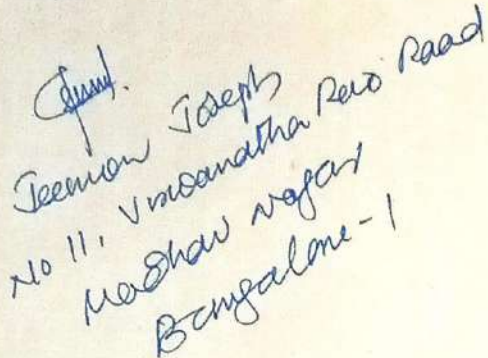 Jeemon Joseph
No 11, Viswanatha Rao Road
Madhav Nagar
Bangalore-1